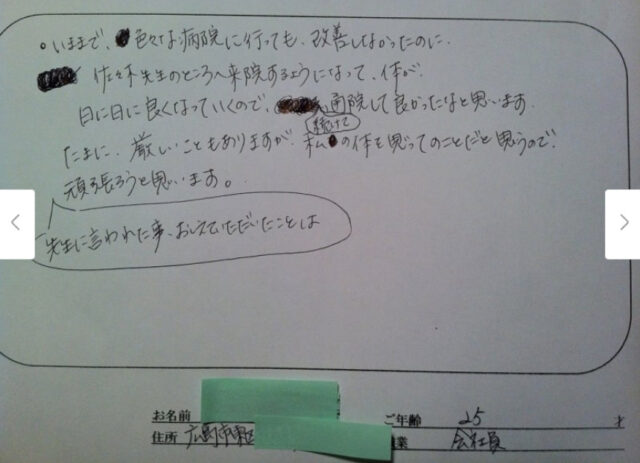 。いままで、色々な病院に行っても、改善しなかったのに、
佐々木先生のところへ来院するようになって、体が、
日に日に良くなっていくので、通院して良かったなと思います。
続けて
たまに、厳しいこともありますが、私の体を思ってのことだと思うので、
頑張ろうと思います。
先生に言われた事、おしえていただいたことは
お名前
ご年齢 25 才
住所 広島市東区
業 会社員